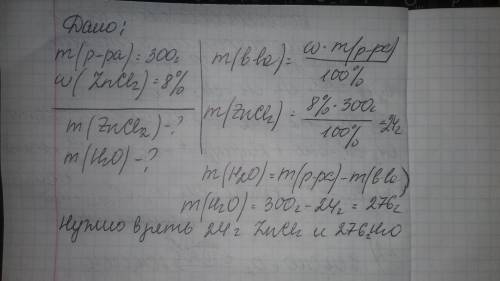 Дано:
m(р-ра) = 300г
ω(ZnCl2) = 8%
m(ZnCl2) - ?
m(H2O) - ?
m(в-ва) = ω · m(р-ра) / 100%
m(ZnCl2) = 8% · 300г / 100% = 24г
m(H2O) = m(р-ра) - m(в-ва)
m(H2O) = 300г - 24г = 276г
Нужно взять 24 г ZnCl2 и 276г H2O